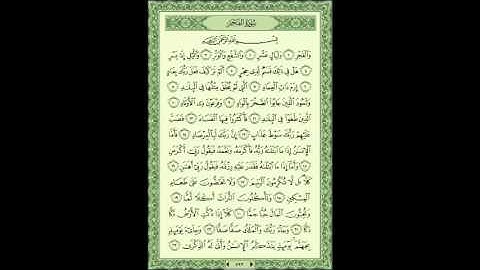 سورة الفجر
بسم الله الرحمن الرحيم
والفجر ١ وليال عشر ٢ والشفع والوتر ٣ واليل إذا يسر
٤ هل في ذلك قسم لذي حجر ٥ ألم تر كيف فعل ربك بعاد
٦ إرم ذات العماد ٧ التي لم يخلق مثلها في البلاد ٨
وثمود الذين جابوا الصخر بالواد ٩ وفرعون ذي الأوتاد ١٠
الذين طغوا في البلاد ١١ فأكثروا فيها الفساد ١٢ فصب
عليهم ربك سوط عذاب ١٣ إن ربك لبالمرصاد ١٤ فأما
الإنسان إذا ما ابتلاه ربه فأكرمه ونعمه فيقول ربي أكرمن
١٥ وأما إذا ما ابتلاه فقدر عليه رزقه فيقول ربي أهانن ١٦
كلا بل لا تكرمون اليتيم ١٧ ولا تحاضون على طعام
المسكين ١٨ وتأكلون التراث أكلا لما ١٩
وتحبون المال حبا جما ٢٠ كلا إذا دكت الأرض دكا
دكا ٢١ وجاء ربك والملك صفا صفا ٢٢ وجايء يومئذ
بجهنم يومئذ يتذكر الإنسان وأنى له الذكرى ٢٣
٥٩٣